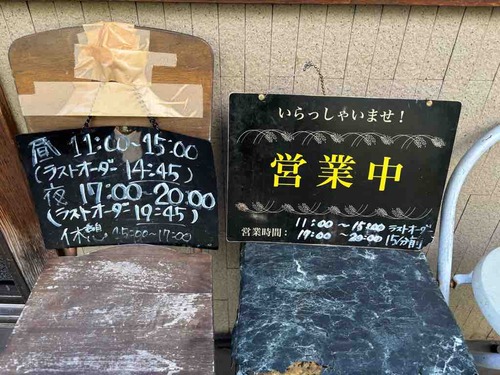 昼 11:00~15:00
(ラストオーダー 14:45)
夜 17:00~20:00
(ラストオーダー 19:45)
休憩 15:00-17:00
いらっしゃいませ!
営業中
営業時間: 11:00 ~ 15:00 ラストオーダー
17:00 ~ 20:00 15分前